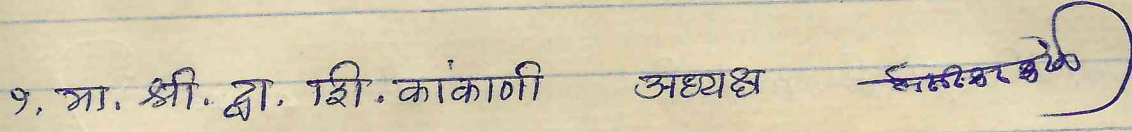 १. मा. श्री. द्वा. शि. कांकाणी अध्यक्ष